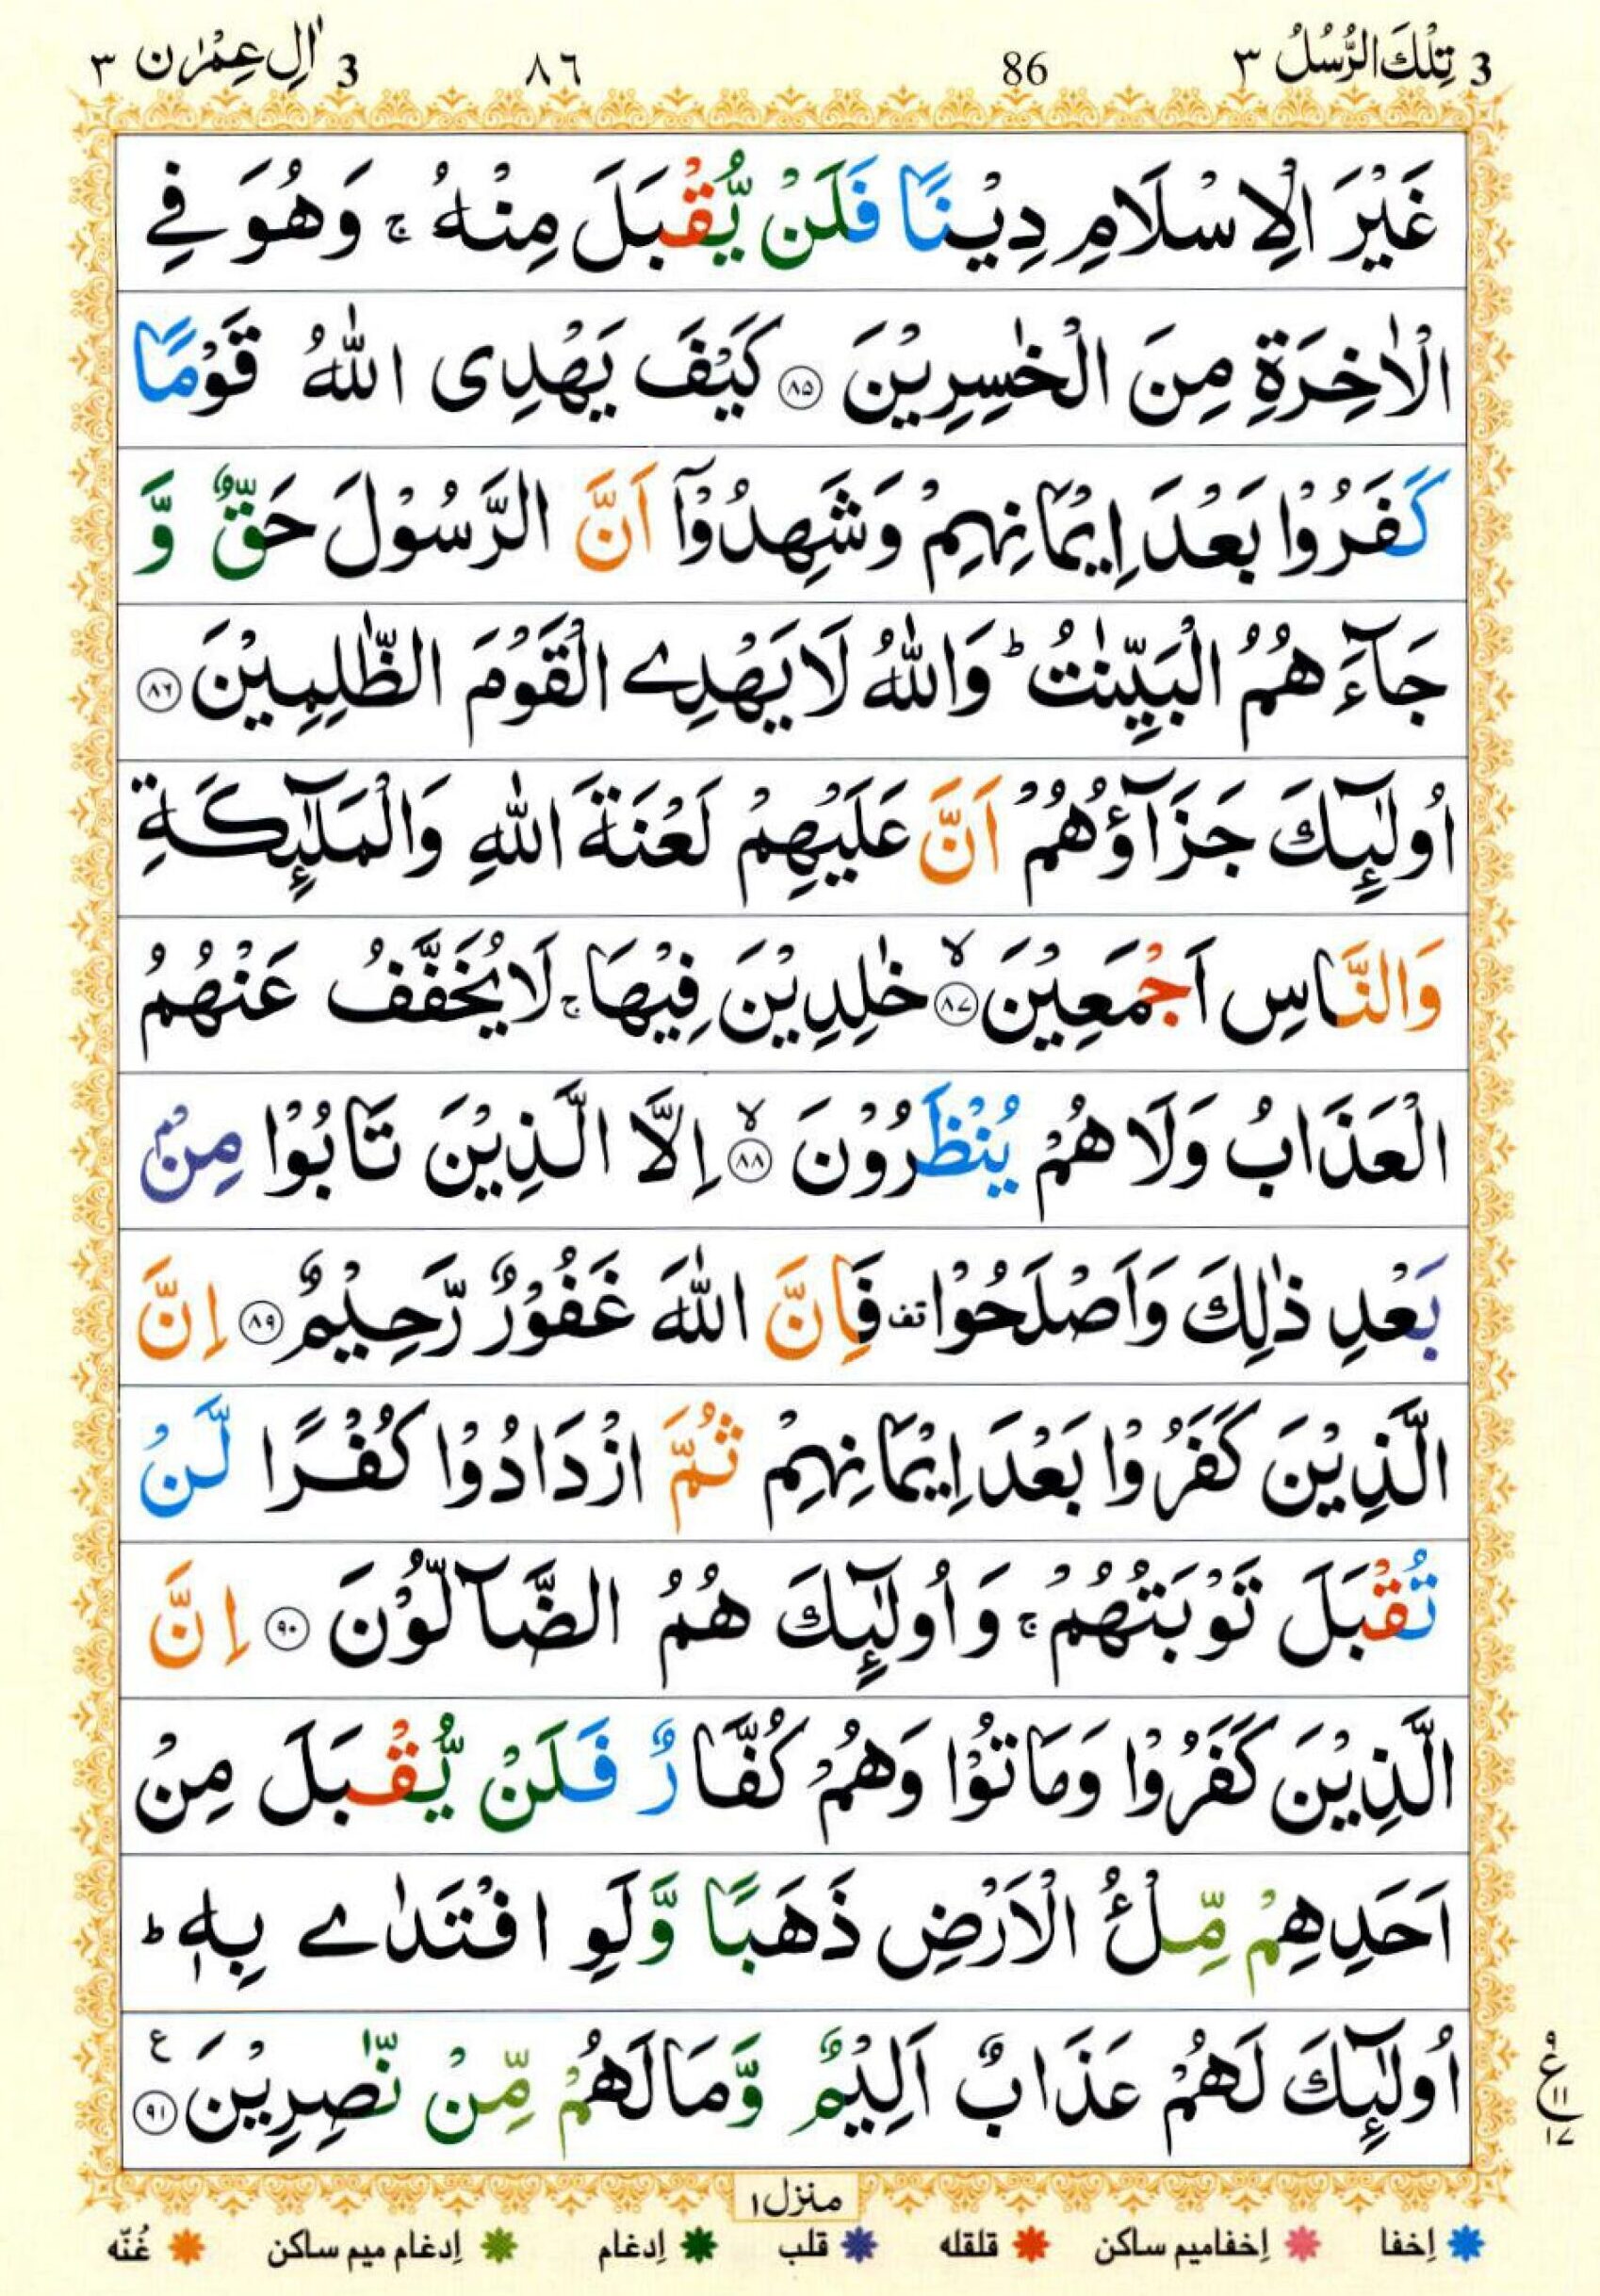 3 تِلْكَ الرُّسُلُ ٣ 86 ٨٦ 3 اٰلِ عِمْرٰن ٣
غَيْرَ الْاِسْلَامِ دِيْنًا فَلَنْ يُّقْبَلَ مِنْهُ ۚ وَهُوَ فِي
الْاٰخِرَةِ مِنَ الْخٰسِرِيْنَ ۝٨٥ كَيْفَ يَهْدِى اللّٰهُ قَوْمًا
كَفَرُوْا بَعْدَ اِيْمَانِهِمْ وَشَهِدُوْٓا اَنَّ الرَّسُوْلَ حَقٌّ وَّ
جَآءَهُمُ الْبَيِّنٰتُ ؕ وَاللّٰهُ لَا يَهْدِے الْقَوْمَ الظّٰلِمِيْنَ ۝٨٦
اُولٰٓئِكَ جَزَآؤُهُمْ اَنَّ عَلَيْهِمْ لَعْنَةَ اللّٰهِ وَالْمَلٰٓئِكَةِ
وَالنَّاسِ اَجْمَعِيْنَ ۝٨٧ۙ خٰلِدِيْنَ فِيْهَا ۚ لَا يُخَفَّفُ عَنْهُمُ
الْعَذَابُ وَلَا هُمْ يُنْظَرُوْنَ ۝٨٨ۙ اِلَّا الَّذِيْنَ تَابُوْا مِنْۢ
بَعْدِ ذٰلِكَ وَاَصْلَحُوْا قف فَاِنَّ اللّٰهَ غَفُوْرٌ رَّحِيْمٌ ۝٨٩ اِنَّ
الَّذِيْنَ كَفَرُوْا بَعْدَ اِيْمَانِهِمْ ثُمَّ ازْدَادُوْا كُفْرًا لَّنْ
تُقْبَلَ تَوْبَتُهُمْ ۚ وَاُولٰٓئِكَ هُمُ الضَّآلُّوْنَ ۝٩٠ اِنَّ
الَّذِيْنَ كَفَرُوْا وَمَاتُوْا وَهُمْ كُفَّارٌ فَلَنْ يُّقْبَلَ مِنْ
اَحَدِهِمْ مِّلْءُ الْاَرْضِ ذَهَبًا وَّلَوِ افْتَدٰے بِهٖ ؕ
اُولٰٓئِكَ لَهُمْ عَذَابٌ اَلِيْمٌ وَّمَا لَهُمْ مِّنْ نّٰصِرِيْنَ ۝٩١ ع
٩ ع ١١ ١٧
منزل ١
اِخفا اِخفامیم ساکن قلقله قلب اِدغام اِدغام میم ساکن غُنّه